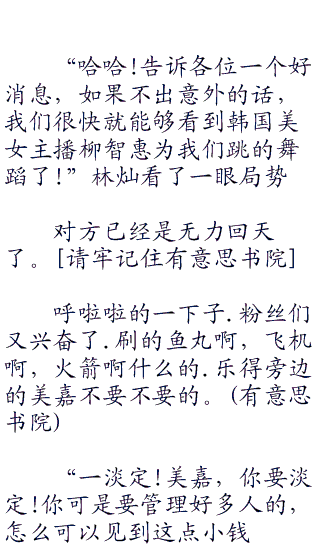 “哈哈!告诉各位一个好
消息，如果不出意外的话，
我们很快就能够看到韩国美
女主播柳智惠为我们跳的舞
蹈了!”林灿看了一眼局势
对方已经是无力回天
了。[请牢记住有意思书院]
呼啦啦的一下子.粉丝们
又兴奋了.刷的鱼丸啊，飞机
啊，火箭啊什么的.乐得旁边
的美嘉不要不要的。(有意思
书院)
“一淡定!美嘉，你要淡
定!你可是要管理好多人的，
怎么可以见到这点小钱